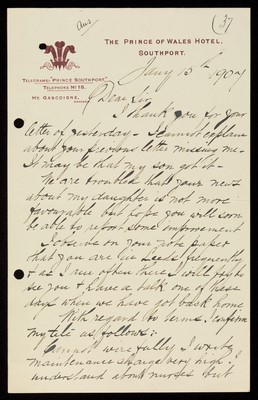 Ans
(37)
THE PRINCE OF WALES HOTEL,
SOUTHPORT.
TELEGRAMS: "PRINCE SOUTHPORT."
TELEPHONE No 15.
MR. GASCOIGNE,
Jany 15th 1907
Dear Sir
I thank you for your
letter of yesterday - I cannot explain
about your previous letter missing me -
It may be that my son got it -
We are troubled that your news
about my daughter is not more
favourable but hope you will soon
be able to report some improvement
I observe on your note paper
that you are in Leeds frequently
& as I am often there I will try to
see you & have a talk one of these
days when we have got back home
With regard to terms I confirm
my tele as follows:-
"Cannot wire fully I write
maintenance charge very high I
understand about nurses but